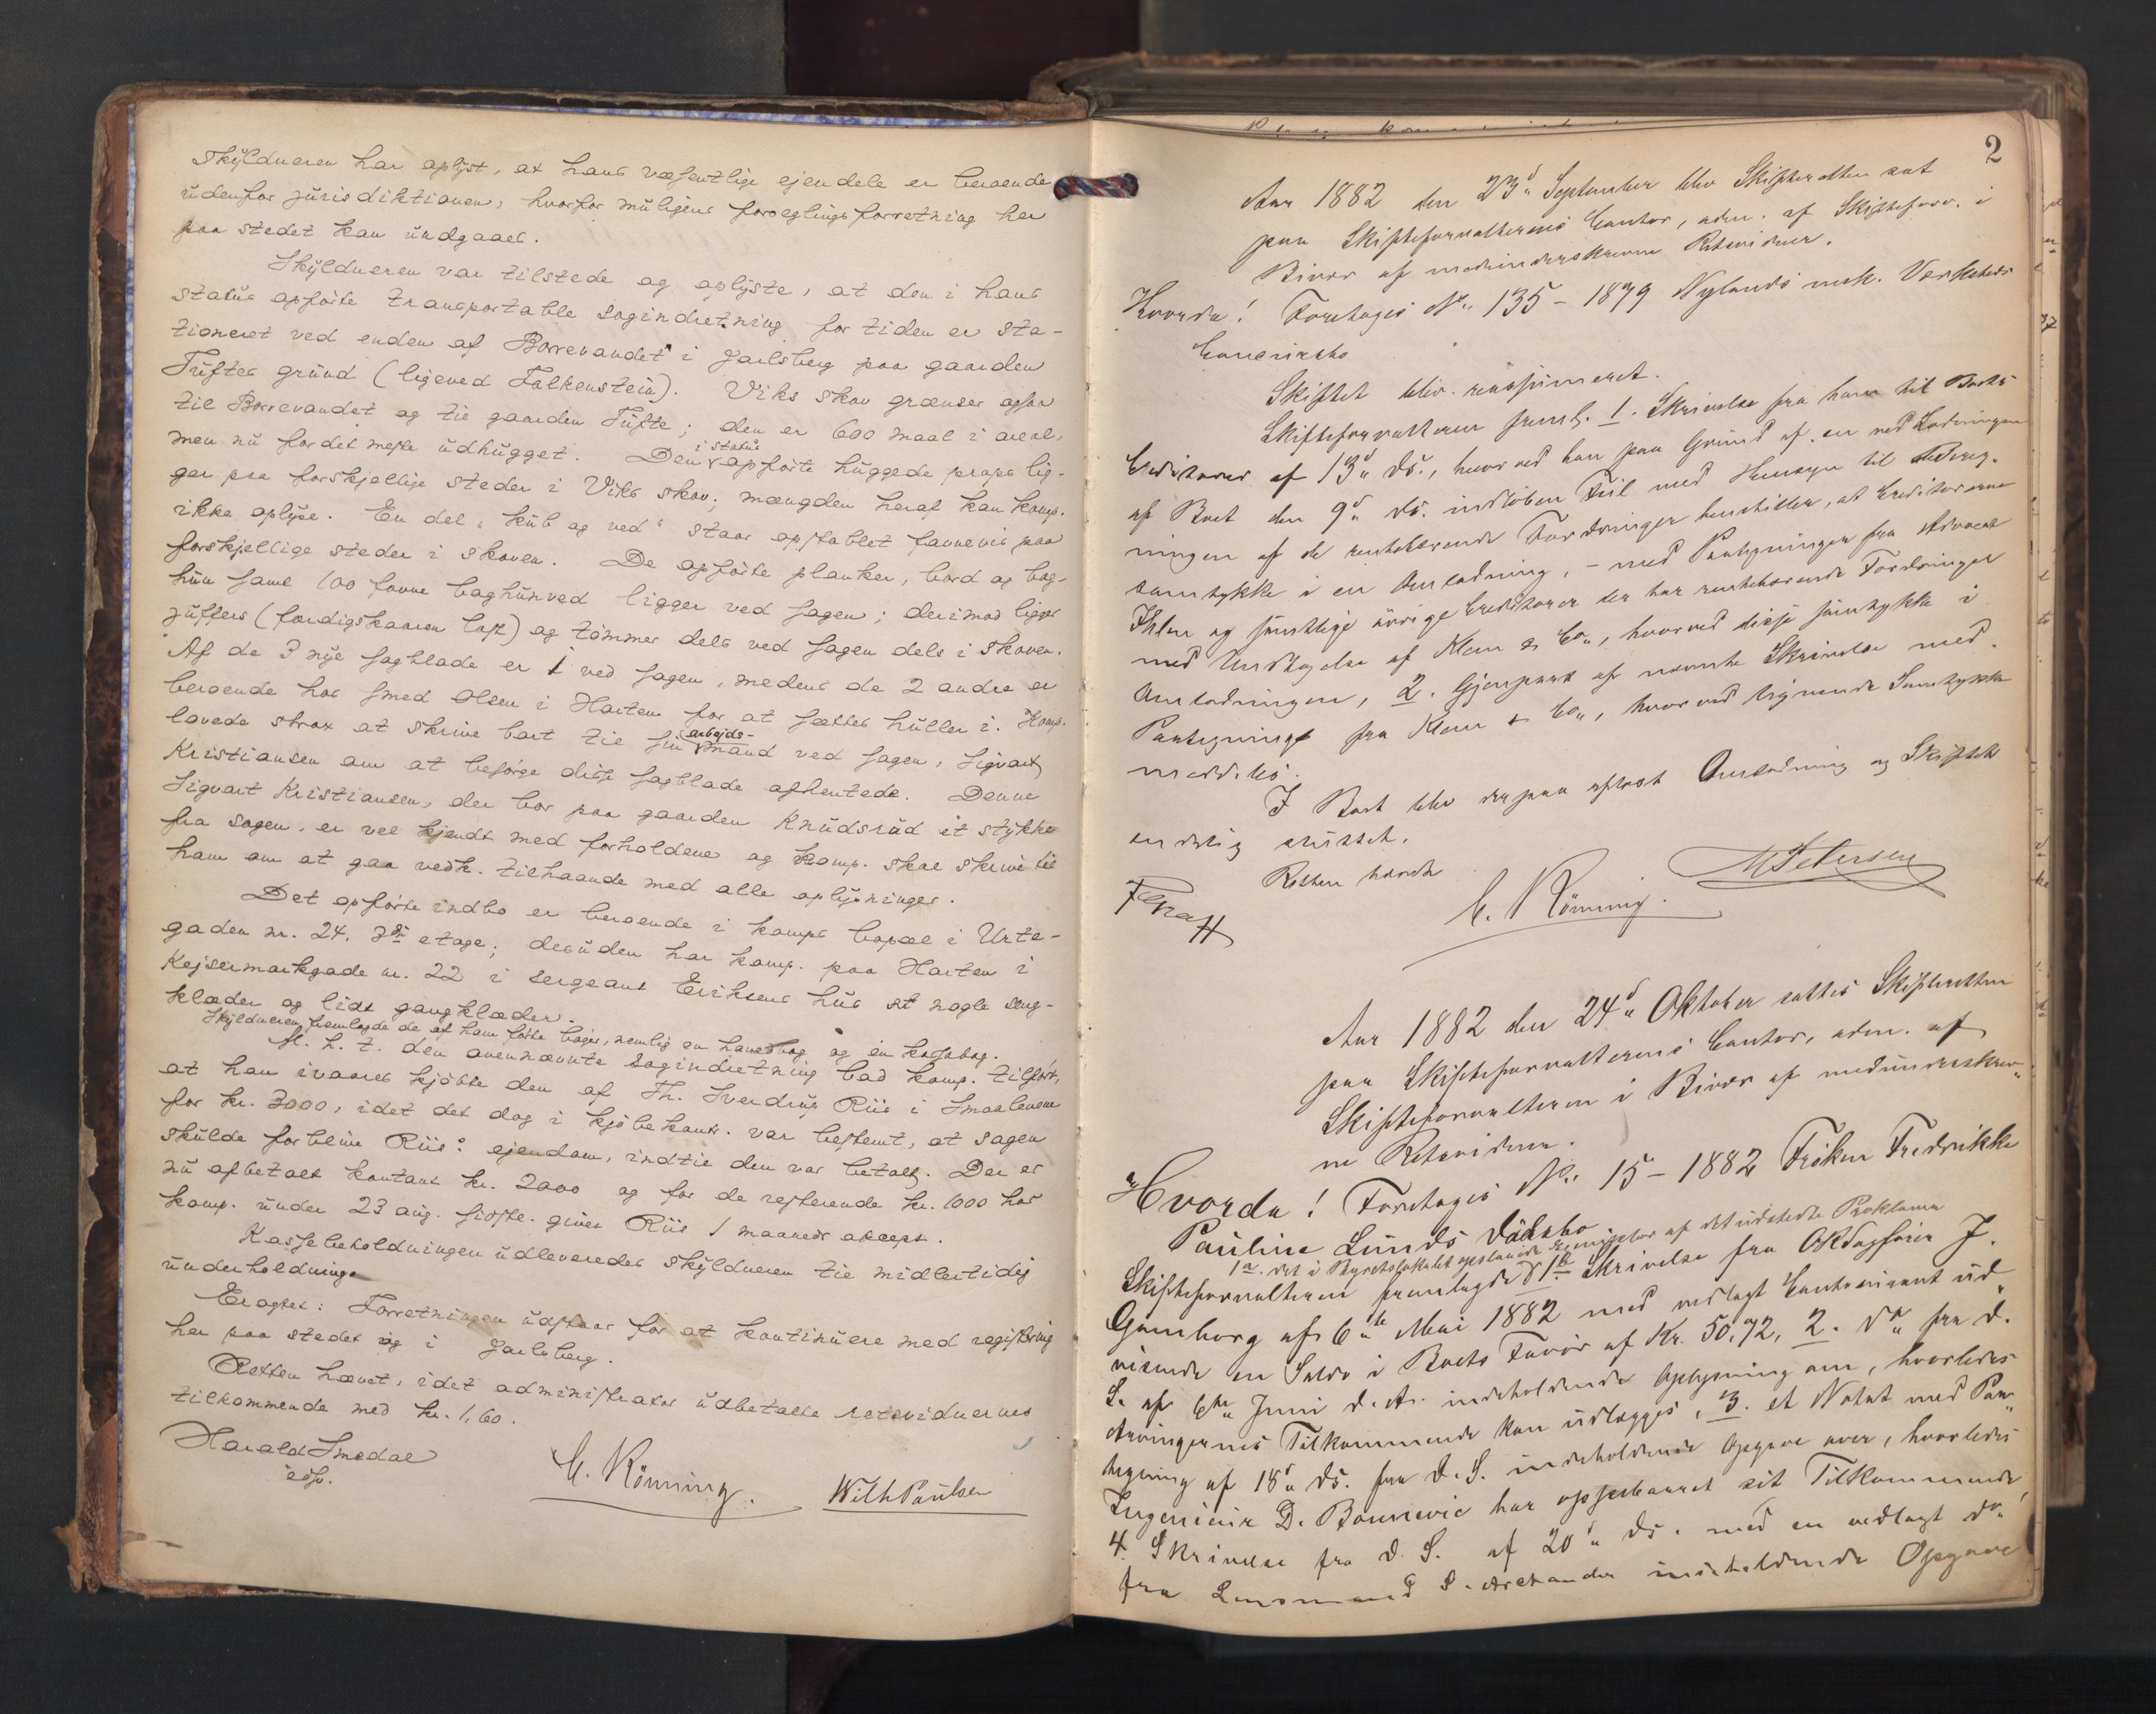 Skyldneren har oplyst, at hans væsentlige ejendele er beroende
udenfor jurisdiktionen, hvorfor muligens forseglingsforretning her
paa stedet kan undgaaes.
Skyldneren var tilstede og oplyste, at den i hans
status opførte transportable sagindretning for tiden er sta-
tioneret ved enden af Borrevandet i Jarlsberg paa gaarden
Tuftes grund (ligeved Falkenstein). Viks skov grænser ogsaa
til Borrevandet og til gaarden Tufte; den er 600 maal i areal,
men nu fordetmeste udhugget. Den i status opførte huggede props lig-
ger paa forskjellige steder i Viks skov; mængden heraf kan komp.
ikke oplyse. En del "kub og ved" staar opstablet favnevis paa
forskjellige steder i skoven. De opførte planker, bord og bag-
hun samt 100 favne baghunved ligger ved sagen; derimod ligger
juffers (færdigskaaren last) og tømmer dels ved sagen dels i skoven.
Af de 3 nye sagblade er 1 ved sagen, medens de 2 andre er
beroende hos smed Olsen i Horten for at sættes huller i. Komp.
lovede strax at skrive bort til sin arbejds-mand ved sagen, Sigvart
Kristiansen om at besørge disse sagblade afhentede. Denne
Sigvart Kristiansen, der bor paa gaarden Knudsrød et stykke
fra sagen, er vel kjendt med forholdene og komp. skal skrive til
ham om at gaa vedk. tilhaande med alle oplysninger.
Det opførte indbo er beroende i komps bopæl i Urte-
gaden nr. 24, 3die etage; desuden har komp. paa Horten i
Kejsermarkgade nr. 22 i sergeant Eriksens hus nogle seng-
klæder og lidt gangklæder.
Skyldneren fremlagde de af ham førte bøger, nemlig en hovedbog og en kassabog.
M. h. t. den ovennævnte sagindretning bad komp. tilført,
at han ivaares kjøbte den af Th. Sverdrup Riis i Smaalenene
for kr. 3000, idet det dog i kjøbekontr. var bestemt, at sagen
skulde forblive Riis's ejendom, indtil den var betalt. Der er
nu afbetalt kontant kr. 2000 og for de resterende kr. 1000 har
komp. under 23 aug. sidstl. given Riis 1 maaneds accept.
Kassebeholdningen udleveredes skyldneren til midlertidig
underholdning.
Eragtet: Forretningen udstaar for at kontinuere med registrering
her paa stedet og i Jarlsberg.
Retten hævet, idet administrator udbetalte retsvidnernes
tilkommende med kr. 1,60.
Harald Smedal
edsv.
C. Rönning.
Wilh Paulsen
2
Aar 1882 den 23d September blev Skifteretten sat
paa Skifteforvalterens Contor, adm. af Skifteforv. i
Bivær af medunderskrevne Retsvidner.
Hvorda! Foretoges No. 135 - 1879 Nylands mek. Verksteds
Concursbo
Skiftet blev reassumeret.
Skifteforvalteren freml. 1. Skrivelse fra ham til Boets
Creditorer af 13d ds., hvorved han paa Grund af en ved Lodningen
af Boet den 9d ds. indløben Feil med Hensyn til Bereg-
ningen af de rentebærende Fordringer henstiller, at Creditorerne
samtykke i en Omlodning, - med Paategninger fra Advocat
Ihlen og samtlige øvrige Creditorer der har rentebærende Fordringer
med Undtagelse af Klem & Co., hvorved disse samtykke i
Omlodningen, 2. Gjenpart af nævnte Skrivelse med
Paategning fra Klem & Co., hvorved lignende Samtykke
meddeles.
I Boet blev derpaa afløst Omlodning og Skiftet
endelig sluttet.
Retten hævet
C. Rönning.
M Petersen
Aar 1882 den 24d Oktober sattes Skifteretten
paa Skifteforvalterens Contor, adm. af
Skifteforvalteren i Bivær af medunderskrev-
ne Retsvidner.
Hvorda! Foretoges No. 15 - 1882 Frøken Fredrikke
Pauline Lunds Dødsbo
1a. det i Byretslokalet opslaaede Exemplar af det udstedte Proklama
Skifteforvalteren fremlagde 1b Skrivelse fra ORsagfører J.
Gamborg af 6te Mai 1882 med vedlagt Contocourant ud-
visende en Saldo i Boets Favør af Kr. 50,72, 2. do fra d.
S. af 6te Juni d. A. indeholdende Opgjøring om, hvorledes
Arvingernes Tilkommende kan udlægges, 3. et Notat med Paa-
tegning af 18d ds. fra d. S. indeholdende Opgave over, hvorledes
Ingeniør D. Bonnevie har oppebaaret sit Tilkommende,
4. Skrivelse fra d. S. af 20d ds. med en vedlagt do
fra Lensmand indeholdende Opgave